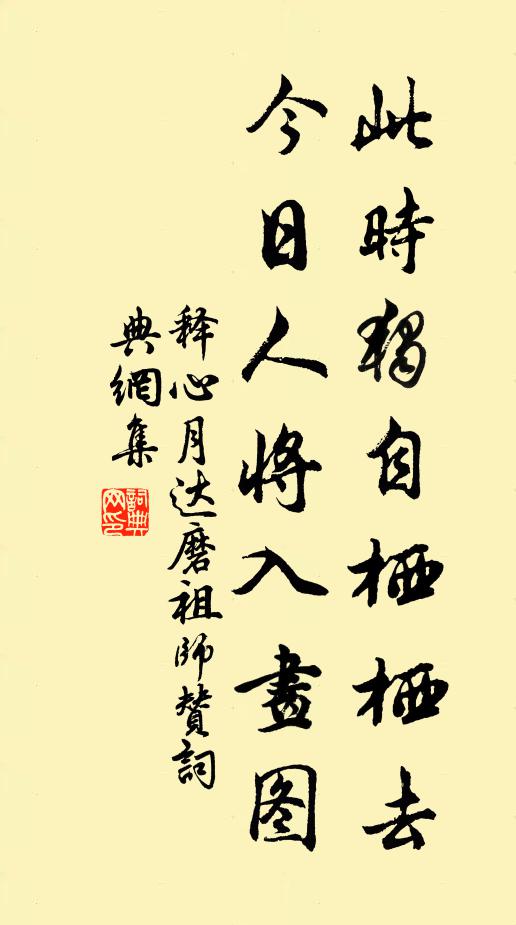 此時獨自栖栖去
今日人将入畫图
释心月达磨祖师赞詞
典網集
詞典网印